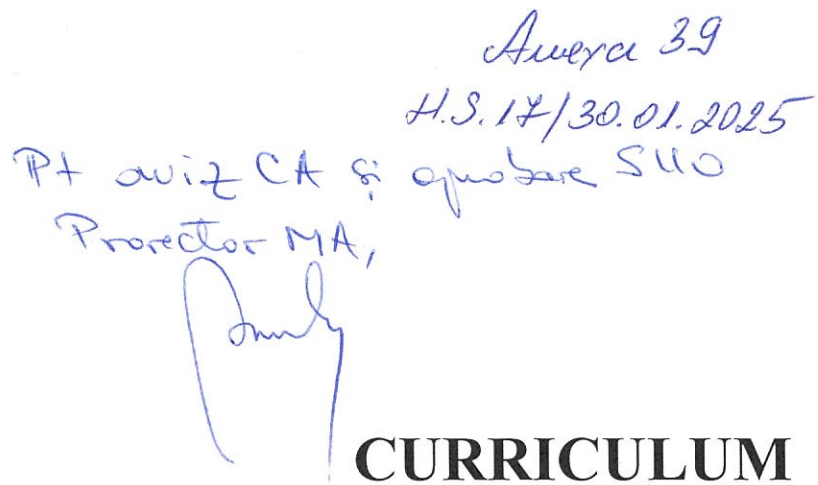 Anexa 39
H.S. 17/30.01.2025
Pt aviz CA și aprobare SUO
Prorector MA,
CURRICULUM